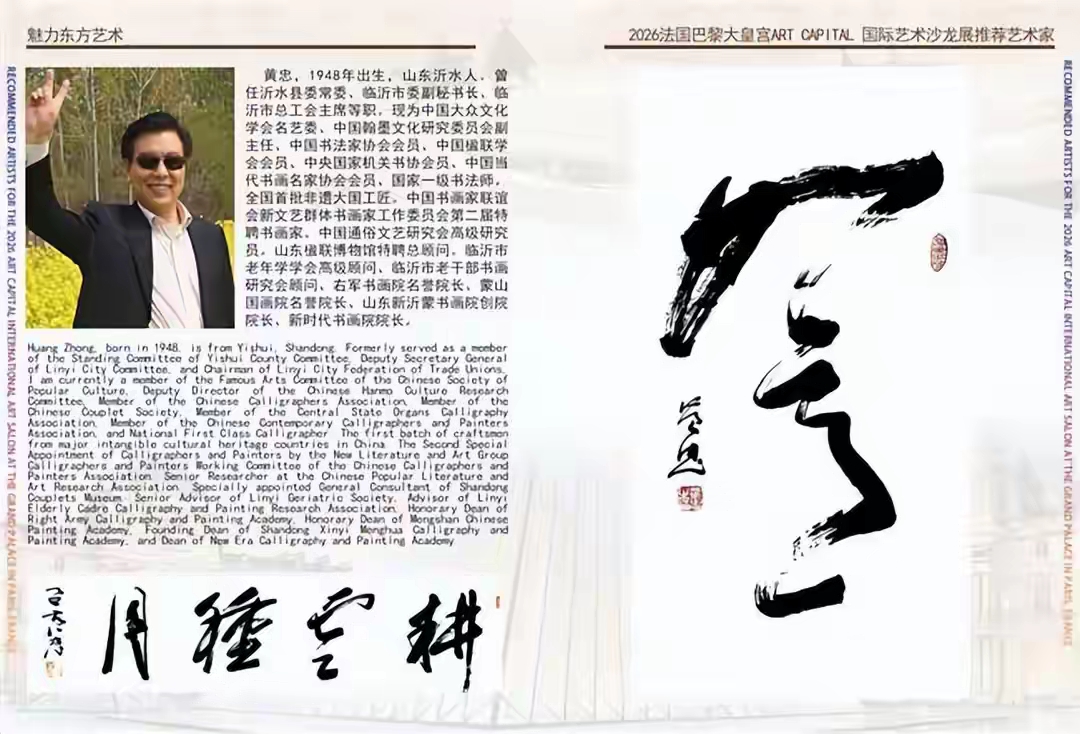 魅力东方艺术
2026法国巴黎大皇宫ART CAPITAL 国际艺术沙龙展推荐艺术家
RECOMMENDED ARTISTS FOR THE 2026 ART CAPITAL INTERNATIONAL ART SALON AT THE GRAND PALACE IN PARIS, FRANCE
黄忠，1948年出生，山东沂水人。曾
任沂水县委常委、临沂市委副秘书长、临
沂市总工会主席等职。现为中国大众文化
学会名艺委、中国翰墨文化研究委员会副
主任、中国书法家协会会员、中国楹联学
会会员、中央国家机关书协会员、中国当
代书画名家协会会员、国家一级书法师。
全国首批非遗大国工匠。中国书画家联谊
会新文艺群体书画家工作委员会第二届特
聘书画家。中国通俗文艺研究会高级研究
员。山东楹联博物馆特聘总顾问。临沂市
老年学学会高级顾问、临沂市老干部书画
研究会顾问、右军书画院名誉院长、蒙山
国画院名誉院长、山东新沂蒙书画院创院
院长、新时代书画院院长。
Huang Zhong, born in 1948, is from Yishui, Shandong. Formerly served as a member
of the Standing Committee of Yishui County Committee, Deputy Secretary General
of Linyi City Committee, and Chairman of Linyi City Federation of Trade Unions.
I am currently a member of the Famous Arts Committee of the Chinese Society of
Popular Culture, Deputy Director of the Chinese Hanmo Culture Research
Committee, Member of the Chinese Calligraphers Association, Member of the
Chinese Couplet Society, Member of the Central State Organs Calligraphy
Association, Member of the Chinese Contemporary Calligraphers and Painters
Association, and National First Class Calligrapher. The first batch of craftsmen
from major intangible cultural heritage countries in China. The Second Special
Appointment of Calligraphers and Painters by the New Literature and Art Group
Calligraphers and Painters Working Committee of the Chinese Calligraphers and
Painters Association. Senior Researcher at the Chinese Popular Literature and
Art Research Association. Specially appointed General Consultant of Shandong
Couplets Museum. Senior Advisor of Linyi Geriatric Society, Advisor of Linyi
Elderly Cadre Calligraphy and Painting Research Association, Honorary Dean of
Right Army Calligraphy and Painting Academy, Honorary Dean of Mengshan Chinese
Painting Academy, Founding Dean of Shandong Xinyi Menghua Calligraphy and
Painting Academy, and Dean of New Era Calligraphy and Painting Academy
耕云种月
RECOMMENDED ARTISTS FOR THE 2026 ART CAPITAL INTERNATIONAL ART SALON AT THE GRAND PALACE IN PARIS, FRANCE